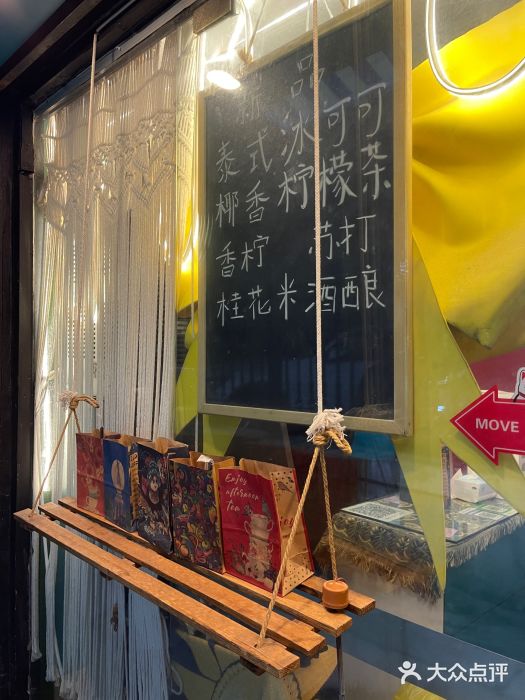 新品
泰式冰可可
椰香柠檬茶
香柠 苏打
桂花米酒酿
MOVE
Enjoy
afternoon
tea
大众点评